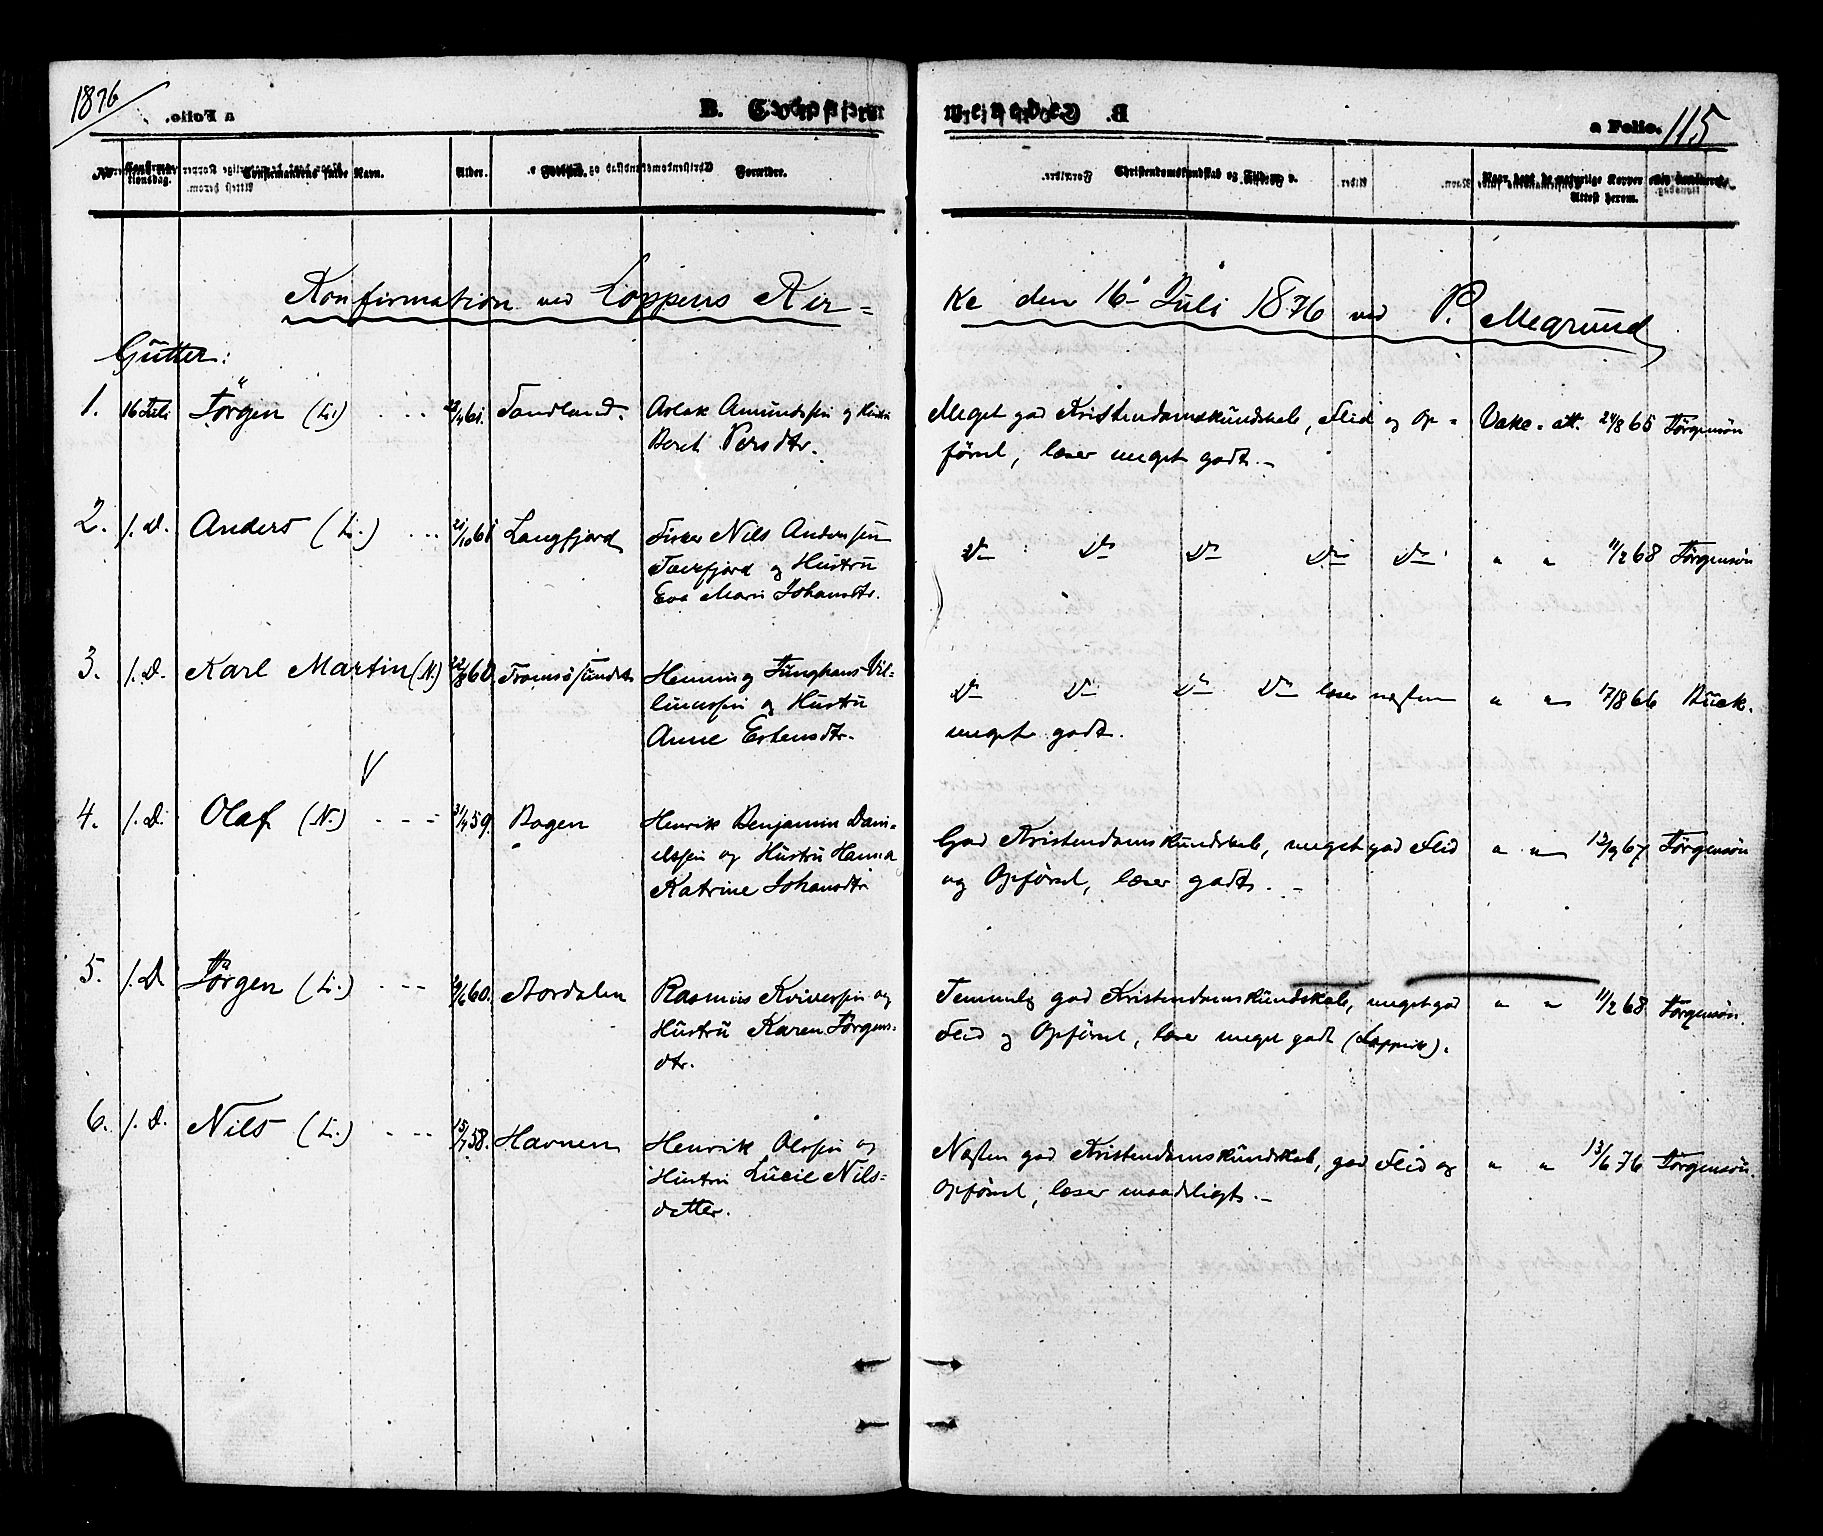 1876
a Folio.
B.
B.
a Folio. 115
No.
Confirma-
tionsdag.
Confirmandens fulde Navn.
Alder.
Forældre.
Christendomskundskab og Flid m. v.
Naar havt de naturlige Kopper eller vaccineret.
Attest herom.
Konfirmation ved Loppens Kir=
ke den 16' Juli 1876 ved P. Megrund
Gutter:
1. 16 Juli Jörgen (L.) 61. Sandland. Aslak Amundssen og Hustru
Beret Persdtr.
Meget god Kristendomskundskab, Flid og Op=
førsel, læser meget godt.
Vakc. att. 24/8 65 Jörgensön
2. s. D. Anders (L.) 21/10 61 Langfjord Fisker Nils Anderssen
Tverfjord og Hustru
Eva Marie Johansdtr.
Do Do Do Do Do " " 11/2 68 Jörgensön
3. s. D. Karl Martin (N.) 22/8 60. Tromsösundet Henning Junghans Vil=
lumssen og Hustru
Anne Estensdtr.
Do Do Do Do læser næsten
meget godt.
" " 17/8 66 Buck.
V
4. s. D. Olaf (N.) 59. Bogen Henrik Benjamin Dani=
elssen og Hustru Hanna
Katrine Johansdtr
God Kristendomskundskab, meget god Flid
og Opførsel, læser godt.
" " 12/9 67 Jörgensön
5. s. D. Jörgen (L.) 9/6 60. Nordalen Rasmus Kviverssen og
Hustru Karen Jörgens=
dtr.
Temmelig god Kristendomskundskab, meget god
Flid og Opførsel, læser meget godt (Lappisk).
" " 11/2 68 Jörgensön.
6. s. D. Nils (L.) 58. Havnen Henrik Olssen og
Hustru Lucie Nils=
datter.
Næsten god Kristendomskundskab, god Flid og
Opførsel, læser maadeligt.
" " 13/6 76 Jörgensön.